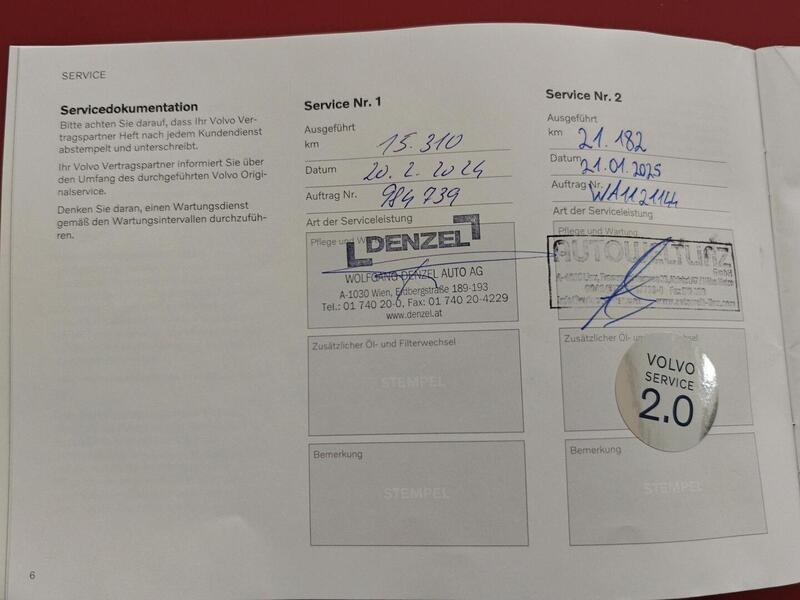 SERVICE
Servicedokumentation
Bitte achten Sie darauf, dass Ihr Volvo Ver-
tragspartner Heft nach jedem Kundendienst
abstempelt und unterschreibt.
Ihr Volvo Vertragspartner informiert Sie über
den Umfang des durchgeführten Volvo Origi-
nalservice.
Denken Sie daran, einen Wartungsdienst
gemäß den Wartungsintervallen durchzufüh-
ren.
Service Nr. 1
Ausgeführt
km 15.310
Datum 20.2.2024
Auftrag Nr. 984739
Art der Serviceleistung
Pflege und
DENZEL
WOLFGANG DENZEL AUTO AG
A-1030 Wien, Erdbergstraße 189-193
Tel.: 01 740 20-0, Fax: 01 740 20-4229
www.denzel.at
Zusätzlicher Öl- und Filterwechsel
STEMPEL
Bemerkung
STEMPEL
Service Nr. 2
Ausgeführt
km 21.182
Datum 21.01.2025
Auftrag Nr. WA1121144
Art der Serviceleistung
Pflege und Wartung
AUTOWELT Linz
GmbH
Zusätzlicher Öl- und
VOLVO
SERVICE
2.0
Bemerkung
STEMPEL
6